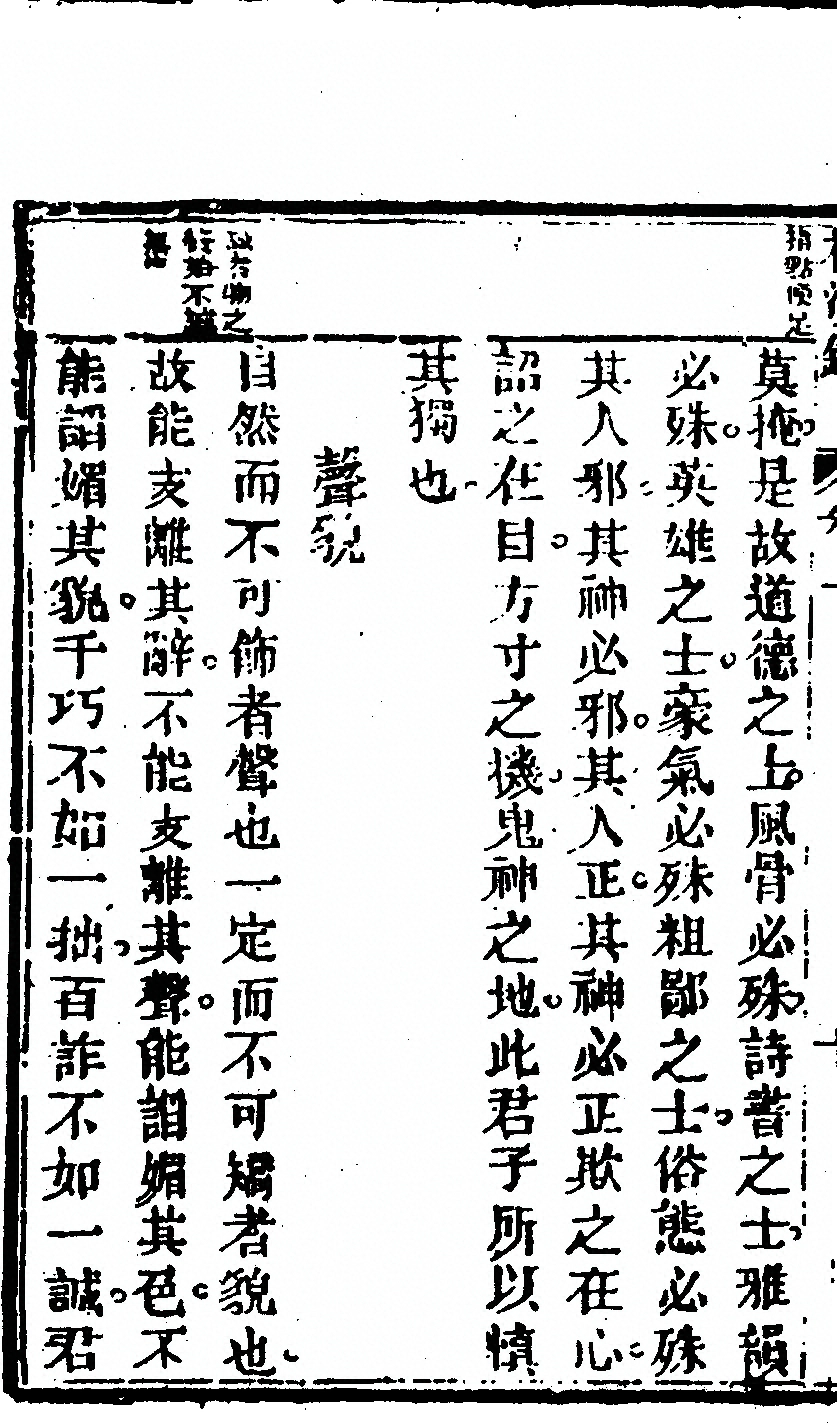 指點便足
莫掩是故道德之士風骨必殊詩書之士雅韻
必殊英雄之士豪氣必殊粗鄙之士俗態必殊
其人邪其神必邪其人正其神必正欺之在心
諂之在目方寸之機鬼神之地此君子所以慎
其獨也
聲貌
自然而不可飾者聲也一定而不可矯者貌也
故能支離其辭不能支離其聲能諂媚其色不
能諂媚其貌千巧不如一拙百詐不如一誠君